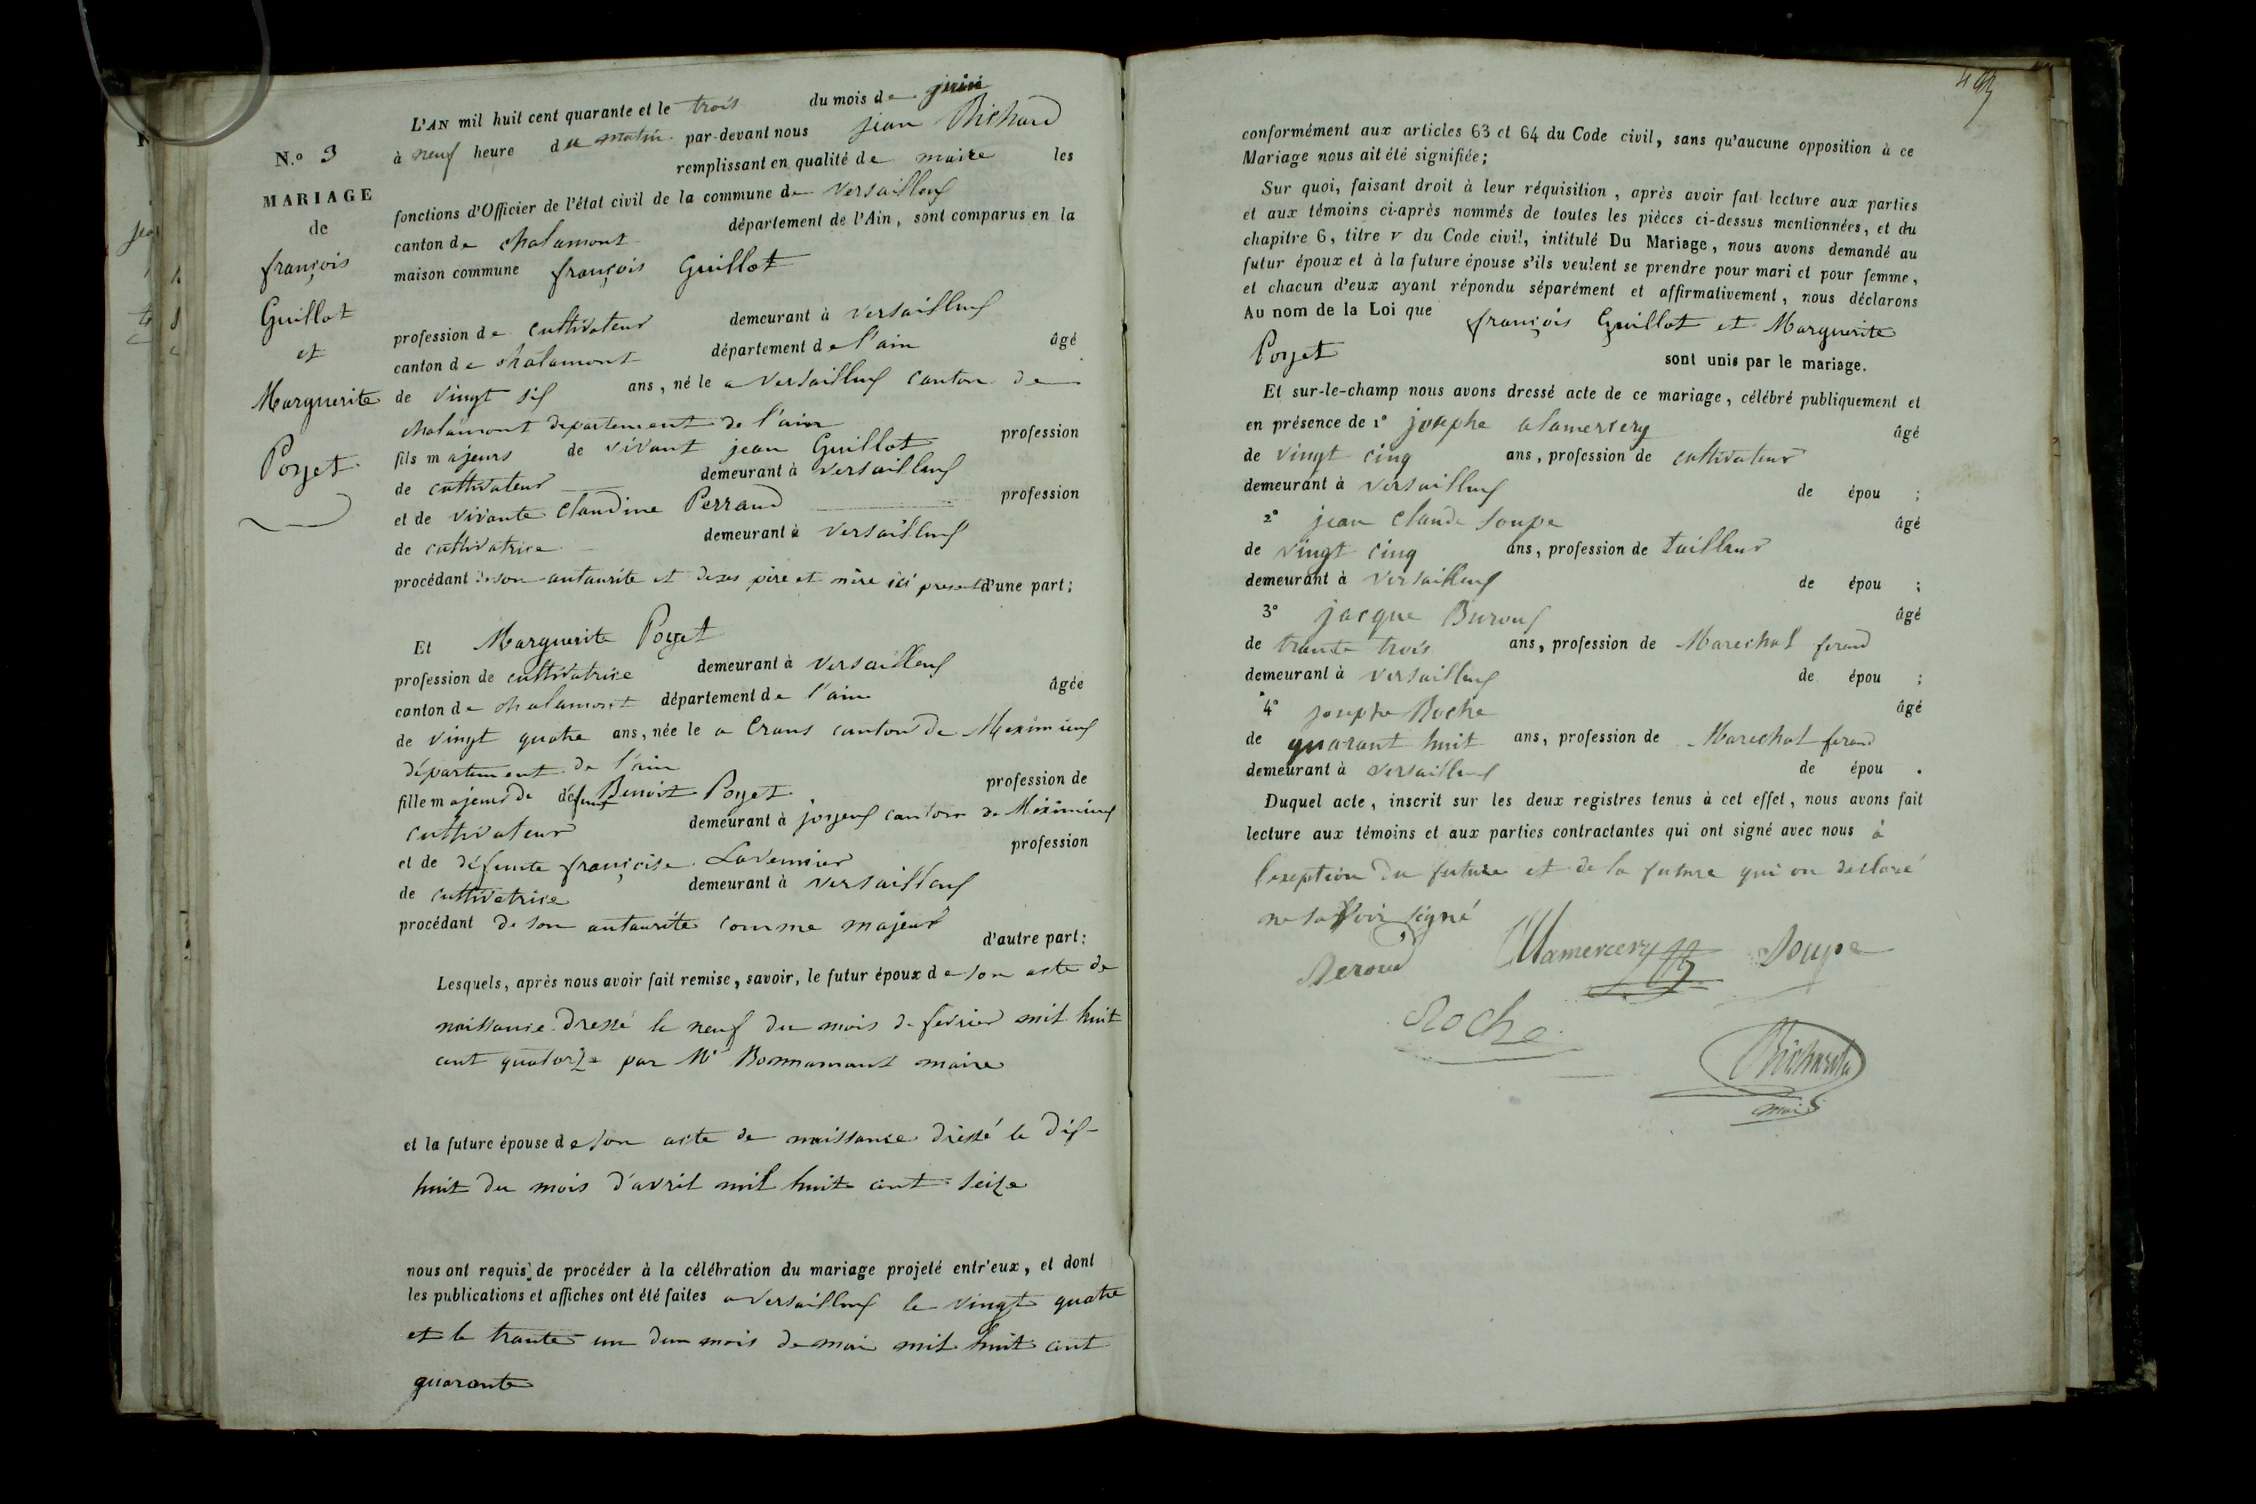 N.º 3
MARIAGE
de
françois
Guillot
et
Marguerite
Poyet
L'AN mil huit cent quarante et le trois du mois de juin
à neuf heure du matin par-devant nous jean Richard
remplissant en qualité de maire les
fonctions d'Officier de l'état civil de la commune de Versailleux
canton de chalamont département de l'Ain, sont comparus en la
maison commune françois Guillot
profession de cultivateur demeurant à Versailleux
canton de chalamont département de l'ain âgé
de vingt six ans, né le a Versailleux canton de
chalamont departement de l'ain
fils majeurs de vivant jean Guillot profession
de cultivateur demeurant à Versailleux
et de vivante Claudine Perraud profession
de cultivatrice demeurant à Versailleux
procédant de son autaurite et de ses père et mère ici present d'une part;
Et Marguerite Poyet
profession de cultivatrice demeurant à Versailleux
canton de chalamont département de l'ain âgée
de vingt quatre ans, née le a Crans canton de Meximieux
département de l'ain
fille majeur de défunt Benoit Poyet profession de
cultivateur demeurant à joyeux canton de Meximieux
et de défunte françoise Lavernier profession
de cultivatrice demeurant à Versailleux
procédant de son autaurite comme majeur
d'autre part:
Lesquels, après nous avoir fait remise, savoir, le futur époux de son acte de
naissance dressé le neuf du mois de fevrier mil huit
cent quatorze par Mr Bonnamant maire
et la future épouse de son acte de naissance dressé le dix-
huit du mois d'avril mil huit cent seize
nous ont requis de procéder à la célébration du mariage projeté entr'eux, et dont
les publications et affiches ont été faites a Versailleux le vingt quatre
et le trante un du mois de mai mil huit cent
quarante
conformément aux articles 63 et 64 du Code civil, sans qu'aucune opposition à ce
Mariage nous ait été signifiée;
Sur quoi, faisant droit à leur réquisition, après avoir fait lecture aux parties
et aux témoins ci-après nommés de toutes les pièces ci-dessus mentionnées, et du
chapitre 6, titre v du Code civil, intitulé Du Mariage, nous avons demandé au
futur époux et à la future épouse s'ils veulent se prendre pour mari et pour femme,
et chacun d'eux ayant répondu séparément et affirmativement, nous déclarons
Au nom de la Loi que françois Guillot et Marguerite
Poyet sont unis par le mariage.
Et sur-le-champ nous avons dressé acte de ce mariage, célébré publiquement et
en présence de 1º josephe alamercery âgé
de vingt cinq ans, profession de cultivateur
demeurant à Versailleux de épou ;
2º jean claude soupe âgé
de vingt cinq ans, profession de tailleur
demeurant à Versailleux de épou ;
3º jacque âgé
de trante trois ans, profession de Marechal ferand
demeurant à Versailleux de épou ;
4º josephe Roche âgé
de quarant huit ans, profession de Marechal ferand
demeurant à Versailleux de épou .
Duquel acte, inscrit sur les deux registres tenus à cet effet, nous avons fait
lecture aux témoins et aux parties contractantes qui ont signé avec nous à
l'exeption du future et de la future qui on declaré
ne savoir signé
Alamercery Soupe
Roche
Richard
maire